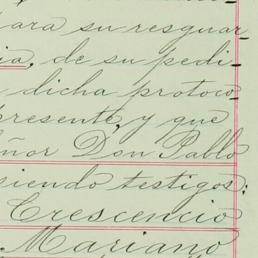 ara su resguar-
ia, de su pedi-
dicha protoco-
presente, y que
ñor Don Pablo
siendo testigos:
Crescencio
Mariano